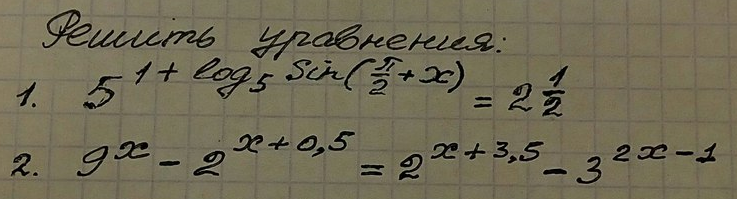 Решить уравнения:
1. 5^{1 + log_5 Sin(π/2 + x)} = 2 1/2
2. 9^x - 2^{x+0,5} = 2^{x+3,5} - 3^{2x-1}